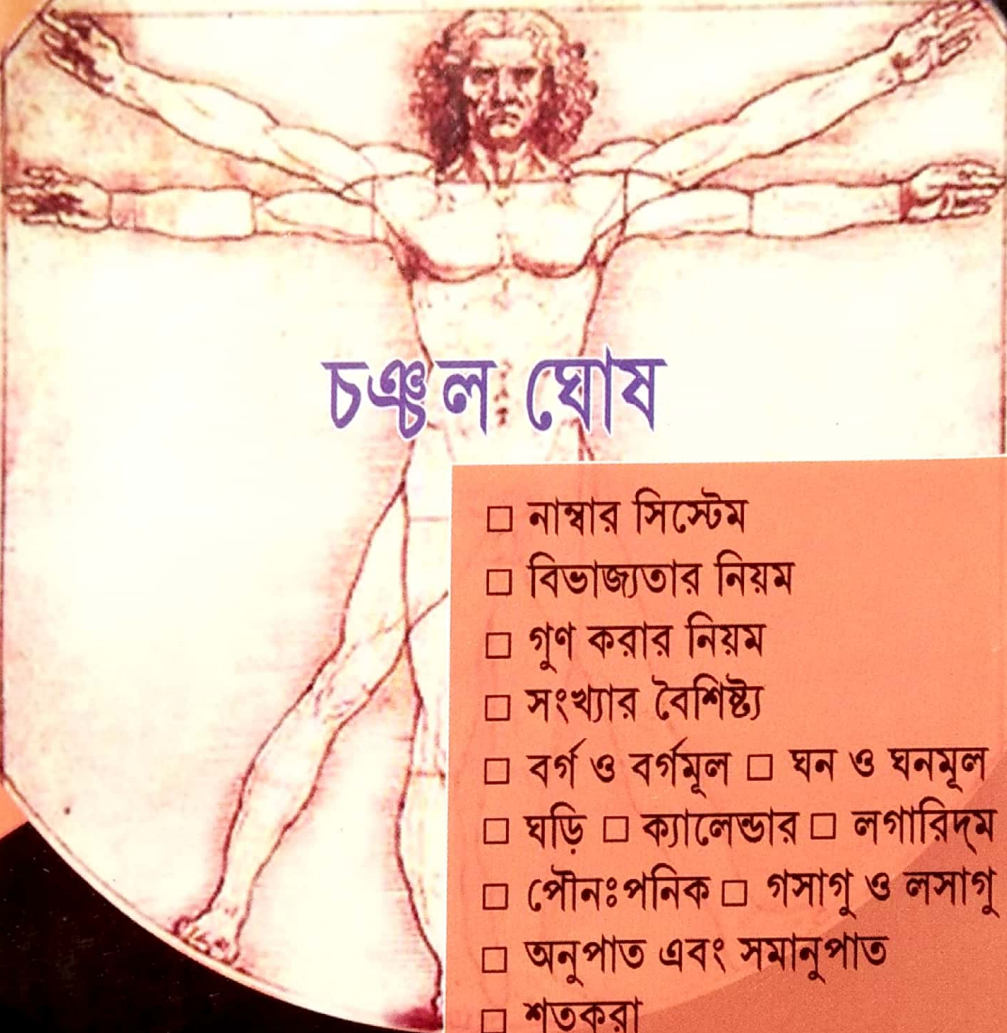 চঞ্চল ঘোষ
□ নাম্বার সিস্টেম
□ বিভাজ্যতার নিয়ম
□ গুণ করার নিয়ম
□ সংখ্যার বৈশিষ্ট্য
□ বর্গ ও বর্গমূল □ ঘন ও ঘনমূল
□ ঘড়ি □ ক্যালেন্ডার □ লগারিদ্‌ম
□ পৌনঃপনিক □ গসাগু ও লসাগু
□ অনুপাত এবং সমানুপাত
□ শতকরা